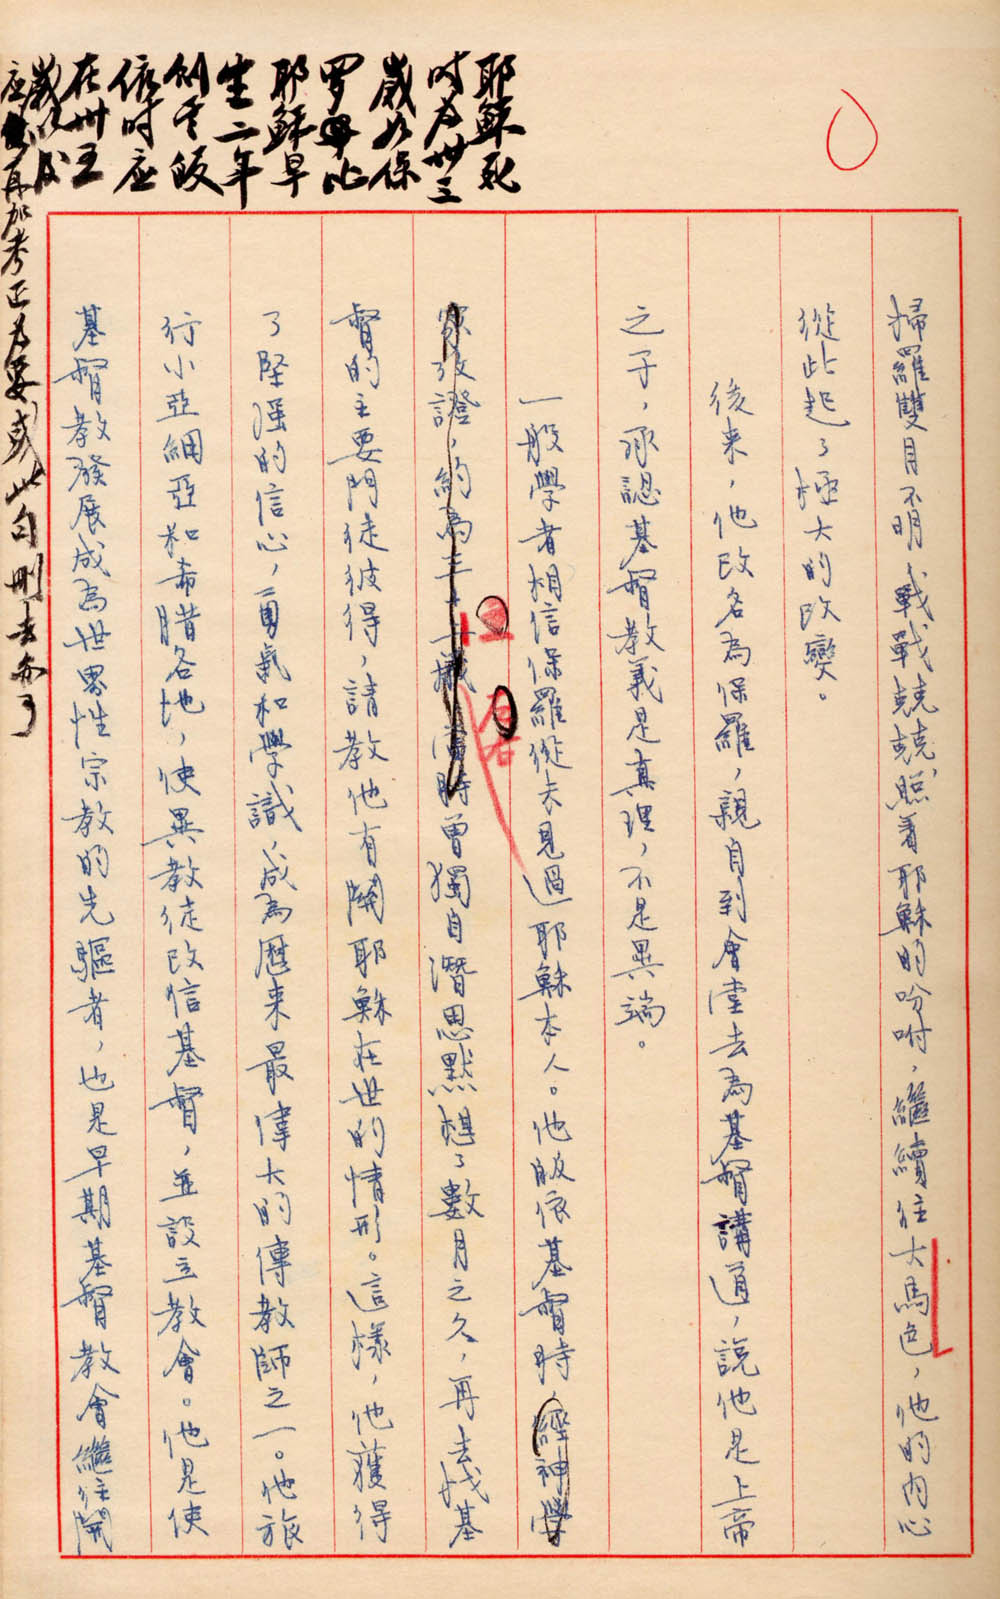 耶穌死
时为卅三
歲如保
罗毋比
耶穌早
生二年
則其皈
依时应
在卅五
歲以後
应再加考正为妥或此句刪去亦可
掃羅雙目不明，戰戰兢兢，照着耶穌的吩咐，繼續往大馬色，他的內心
從此起了極大的改變。
後来，他改名為保羅，親自到會堂去為基督講道，說他是上帝
之子，承認基督教義是真理，不是異端。
一般學者相信保羅從未見過耶穌本人。他皈依基督時，經神學
家攷證，約為三十歲，當時曾獨自潛思默想了數月之久，再去找基
督的主要門徒彼得，請教他有關耶穌在世的情形。這樣，他獲得
了堅强的信心，勇氣和學識，成為歷来最偉大的傳教師之一。他旅
行小亞細亞和希腊各地，使異教徒改信基督，並設立教會。他是使
基督教發展成為世界性宗教的先驅者，也是早期基督教會繼往開